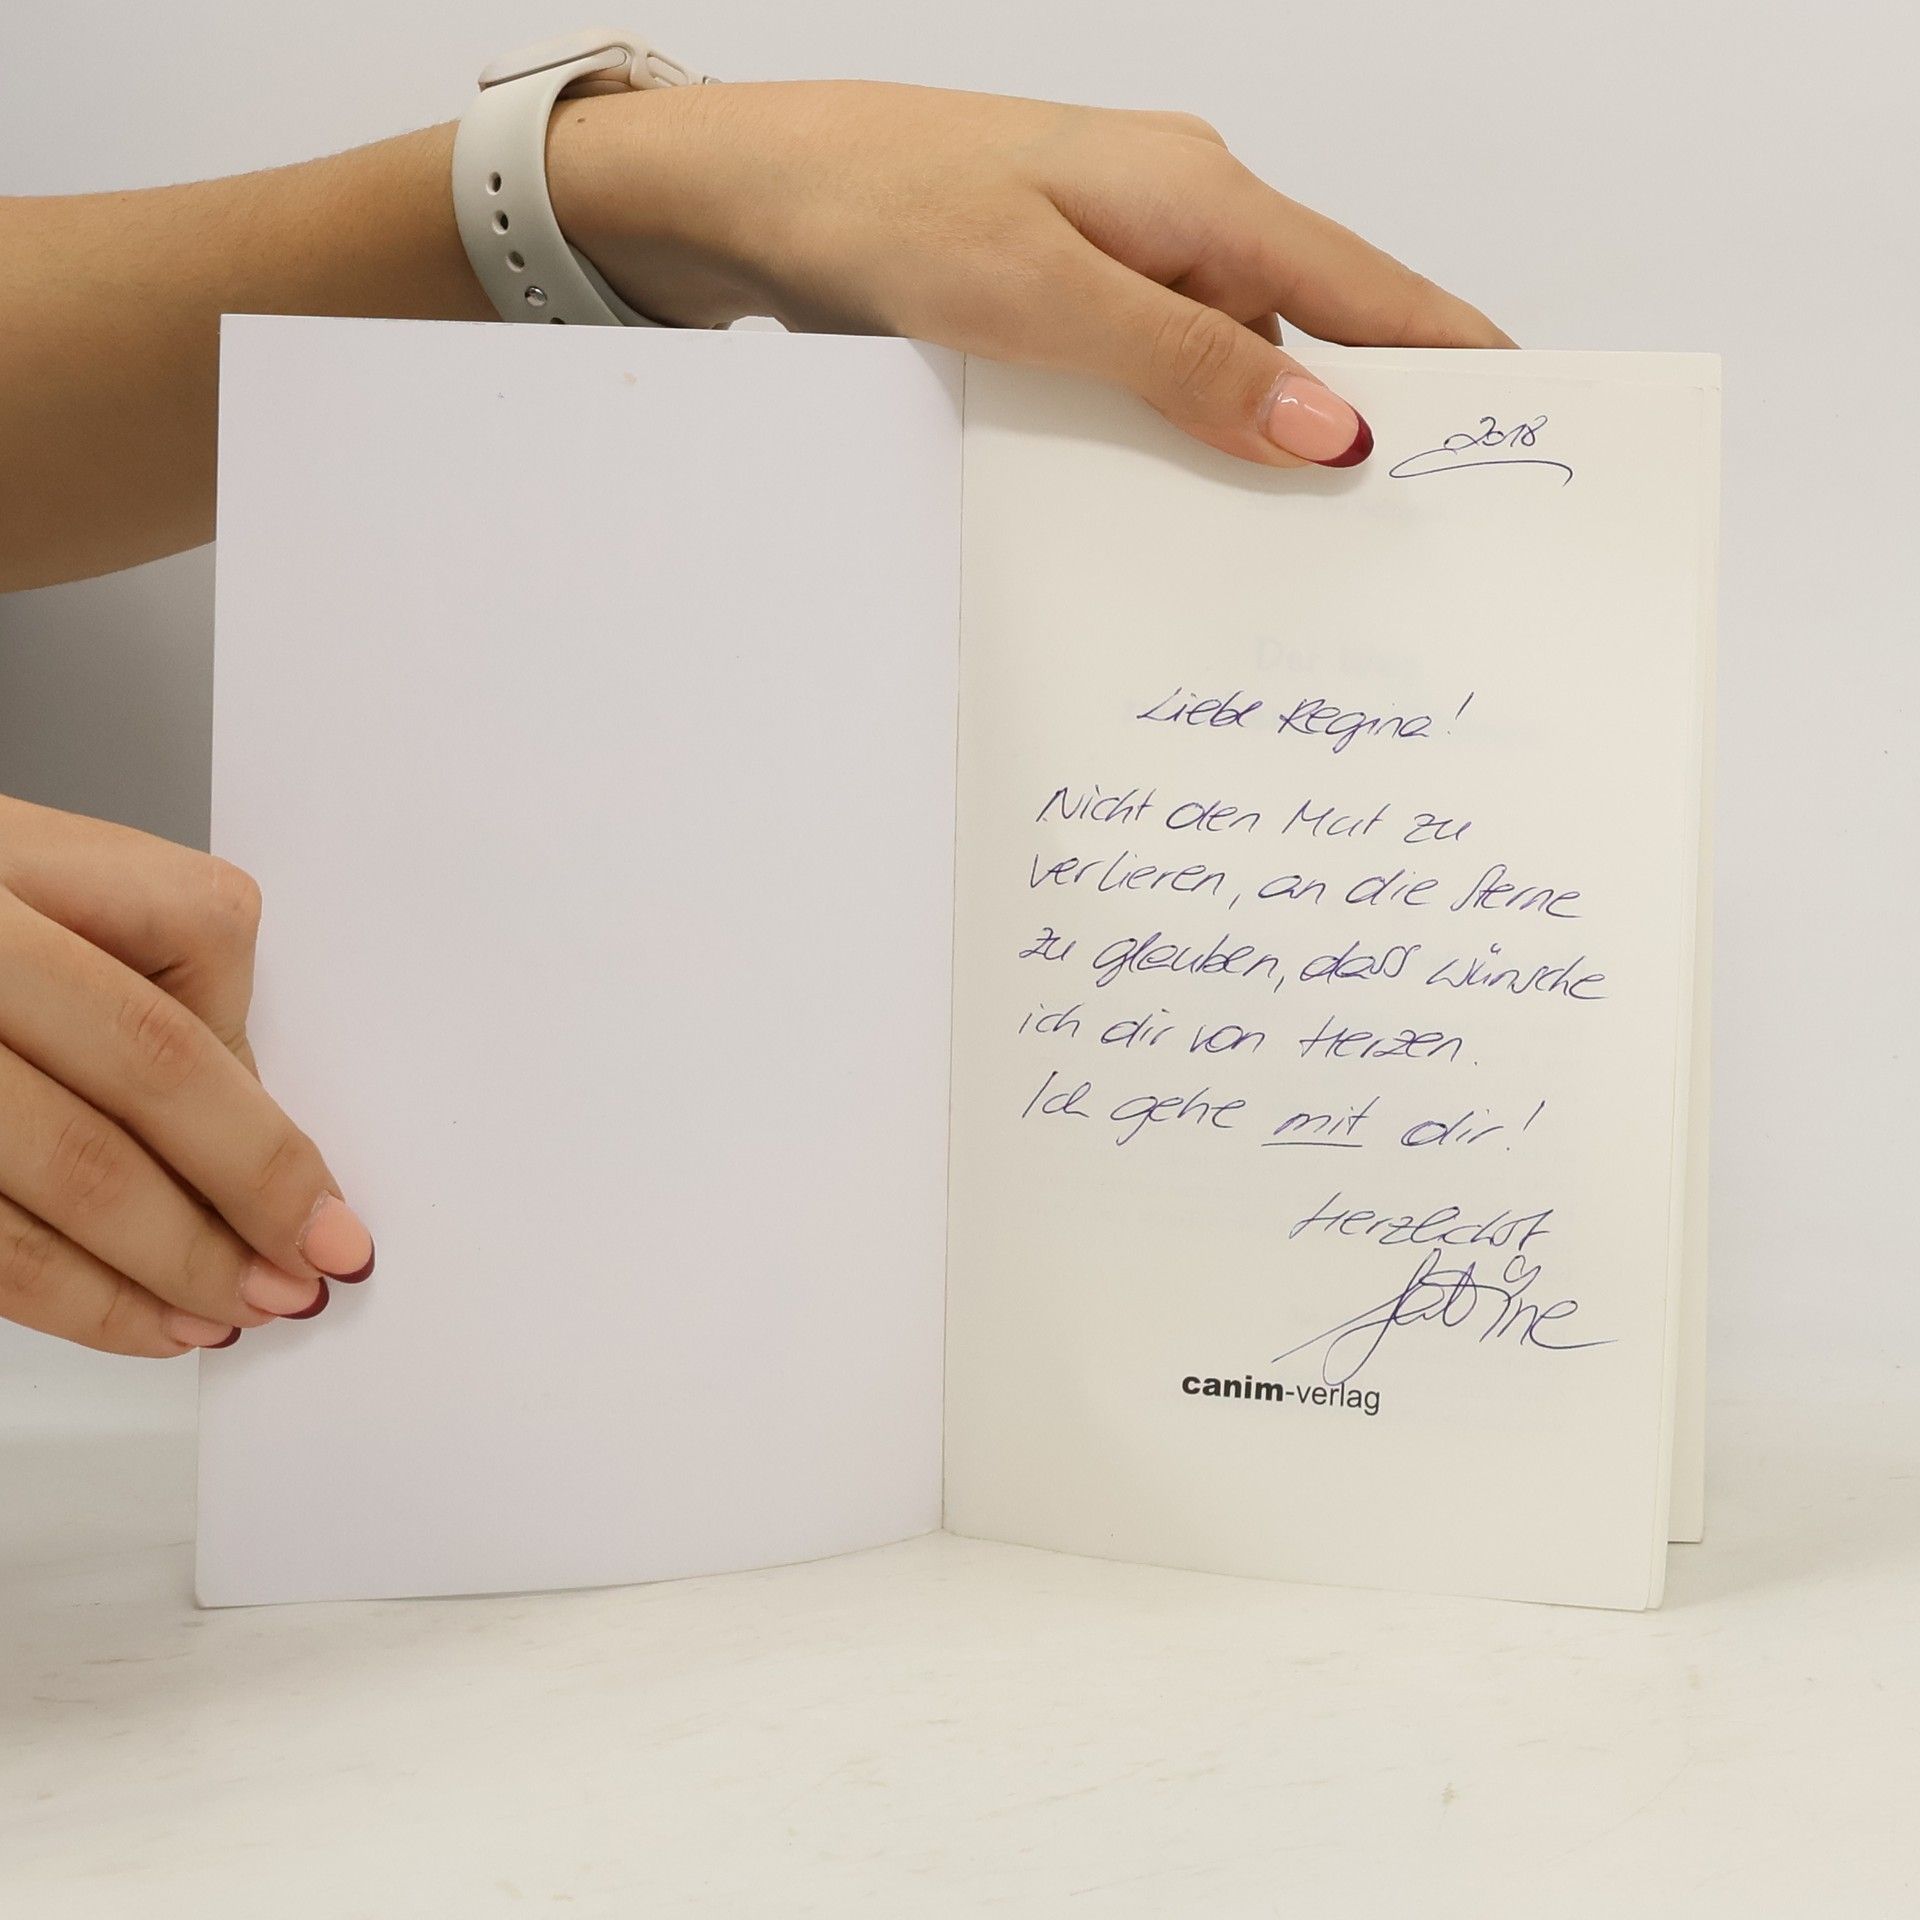 2018
Liebe Regina!
Nicht den Mut zu
verlieren, an die Sterne
zu glauben, dass wünsche
ich dir von Herzen.
Ich gehe mit dir!
Herzlichst
Sabine
canim-verlag